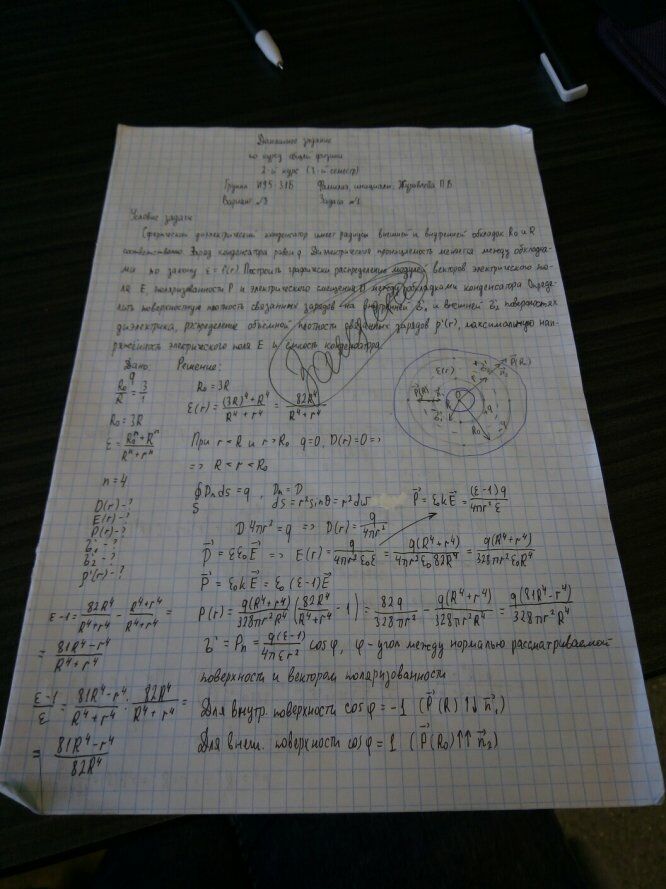 Домашнее задание
по курсу общей физики
2-й курс (3-й семестр)
Группа ИУ5-31Б Фамилия, инициалы: Журавлева П.В.
Вариант №9 Задача №1
Условие задачи
Сферический диэлектрический конденсатор имеет радиусы внешней и внутренней обкладок R₀ и R
соответственно. Заряд конденсатора равен q. Диэлектрическая проницаемость меняется между обкладка-
ми по закону ε = f(r). Построить графически распределение модулей векторов электрического по-
ля E, поляризованности P и электрического смещения D между обкладками конденсатора. Опреде-
лить поверхностную плотность связанных зарядов на внутренней σ'₁ и внешней σ'₂ поверхностях
диэлектрика, распределение объемной плотности связанных зарядов ρ'(r), максимальную нап-
ряженность электрического поля E и емкость конденсатора.
Зачтено
Дано: Решение:
q
R₀/R = 3/1
R₀ = 3R
ε = (R₀ⁿ + Rⁿ)/(Rⁿ + rⁿ)
n = 4
D(r) - ?
E(r) - ?
P(r) - ?
σ'₁ - ?
σ'₂ - ?
ρ'(r) - ?
R₀ = 3R
ε(r) = ((3R)⁴ + R⁴)/(R⁴ + r⁴) = 82R⁴/(R⁴ + r⁴)
При r < R и r > R₀ q=0, D(r) = 0 =>
=> R < r < R₀
∮DₙdS = q, Dₙ = D
S dS = r² sinθ = r²dω
P⃗ = ε₀kE⃗ = (ε-1)q/(4πr²ε)
D·4πr² = q => D(r) = q/(4πr²)
D⃗ = εε₀E⃗ => E(r) = q/(4πr²ε₀ε) = q(R⁴+r⁴)/(4πr²ε₀82R⁴) = q(R⁴+r⁴)/(328πr²ε₀R⁴)
P⃗ = ε₀kE⃗ = ε₀(ε-1)E⃗
P(r) = q(R⁴+r⁴)/(328πr²R⁴) (82R⁴/(R⁴+r⁴) - 1) = 82q/(328πr²) - q(R⁴+r⁴)/(328πr²R⁴) = q(81R⁴-r⁴)/(328πr²R⁴)
σ' = Pₙ = q(ε-1)/(4πεr²) cosφ, φ - угол между нормалью рассматриваемой
поверхности и вектором поляризованности
Для внутр. поверхности cosφ = -1 (P⃗(R) ↑↓ n⃗₁)
Для внеш. поверхности cosφ = 1 (P⃗(R₀) ↑↑ n⃗₂)
ε-1 = 82R⁴/(R⁴+r⁴) - (R⁴+r⁴)/(R⁴+r⁴) =
= (81R⁴-r⁴)/(R⁴+r⁴)
(ε-1)/ε = (81R⁴-r⁴)/(R⁴+r⁴) : 82R⁴/(R⁴+r⁴) =
= (81R⁴-r⁴)/(82R⁴)
ε(r)
P⃗(R)
P⃗(R₀)
R₀